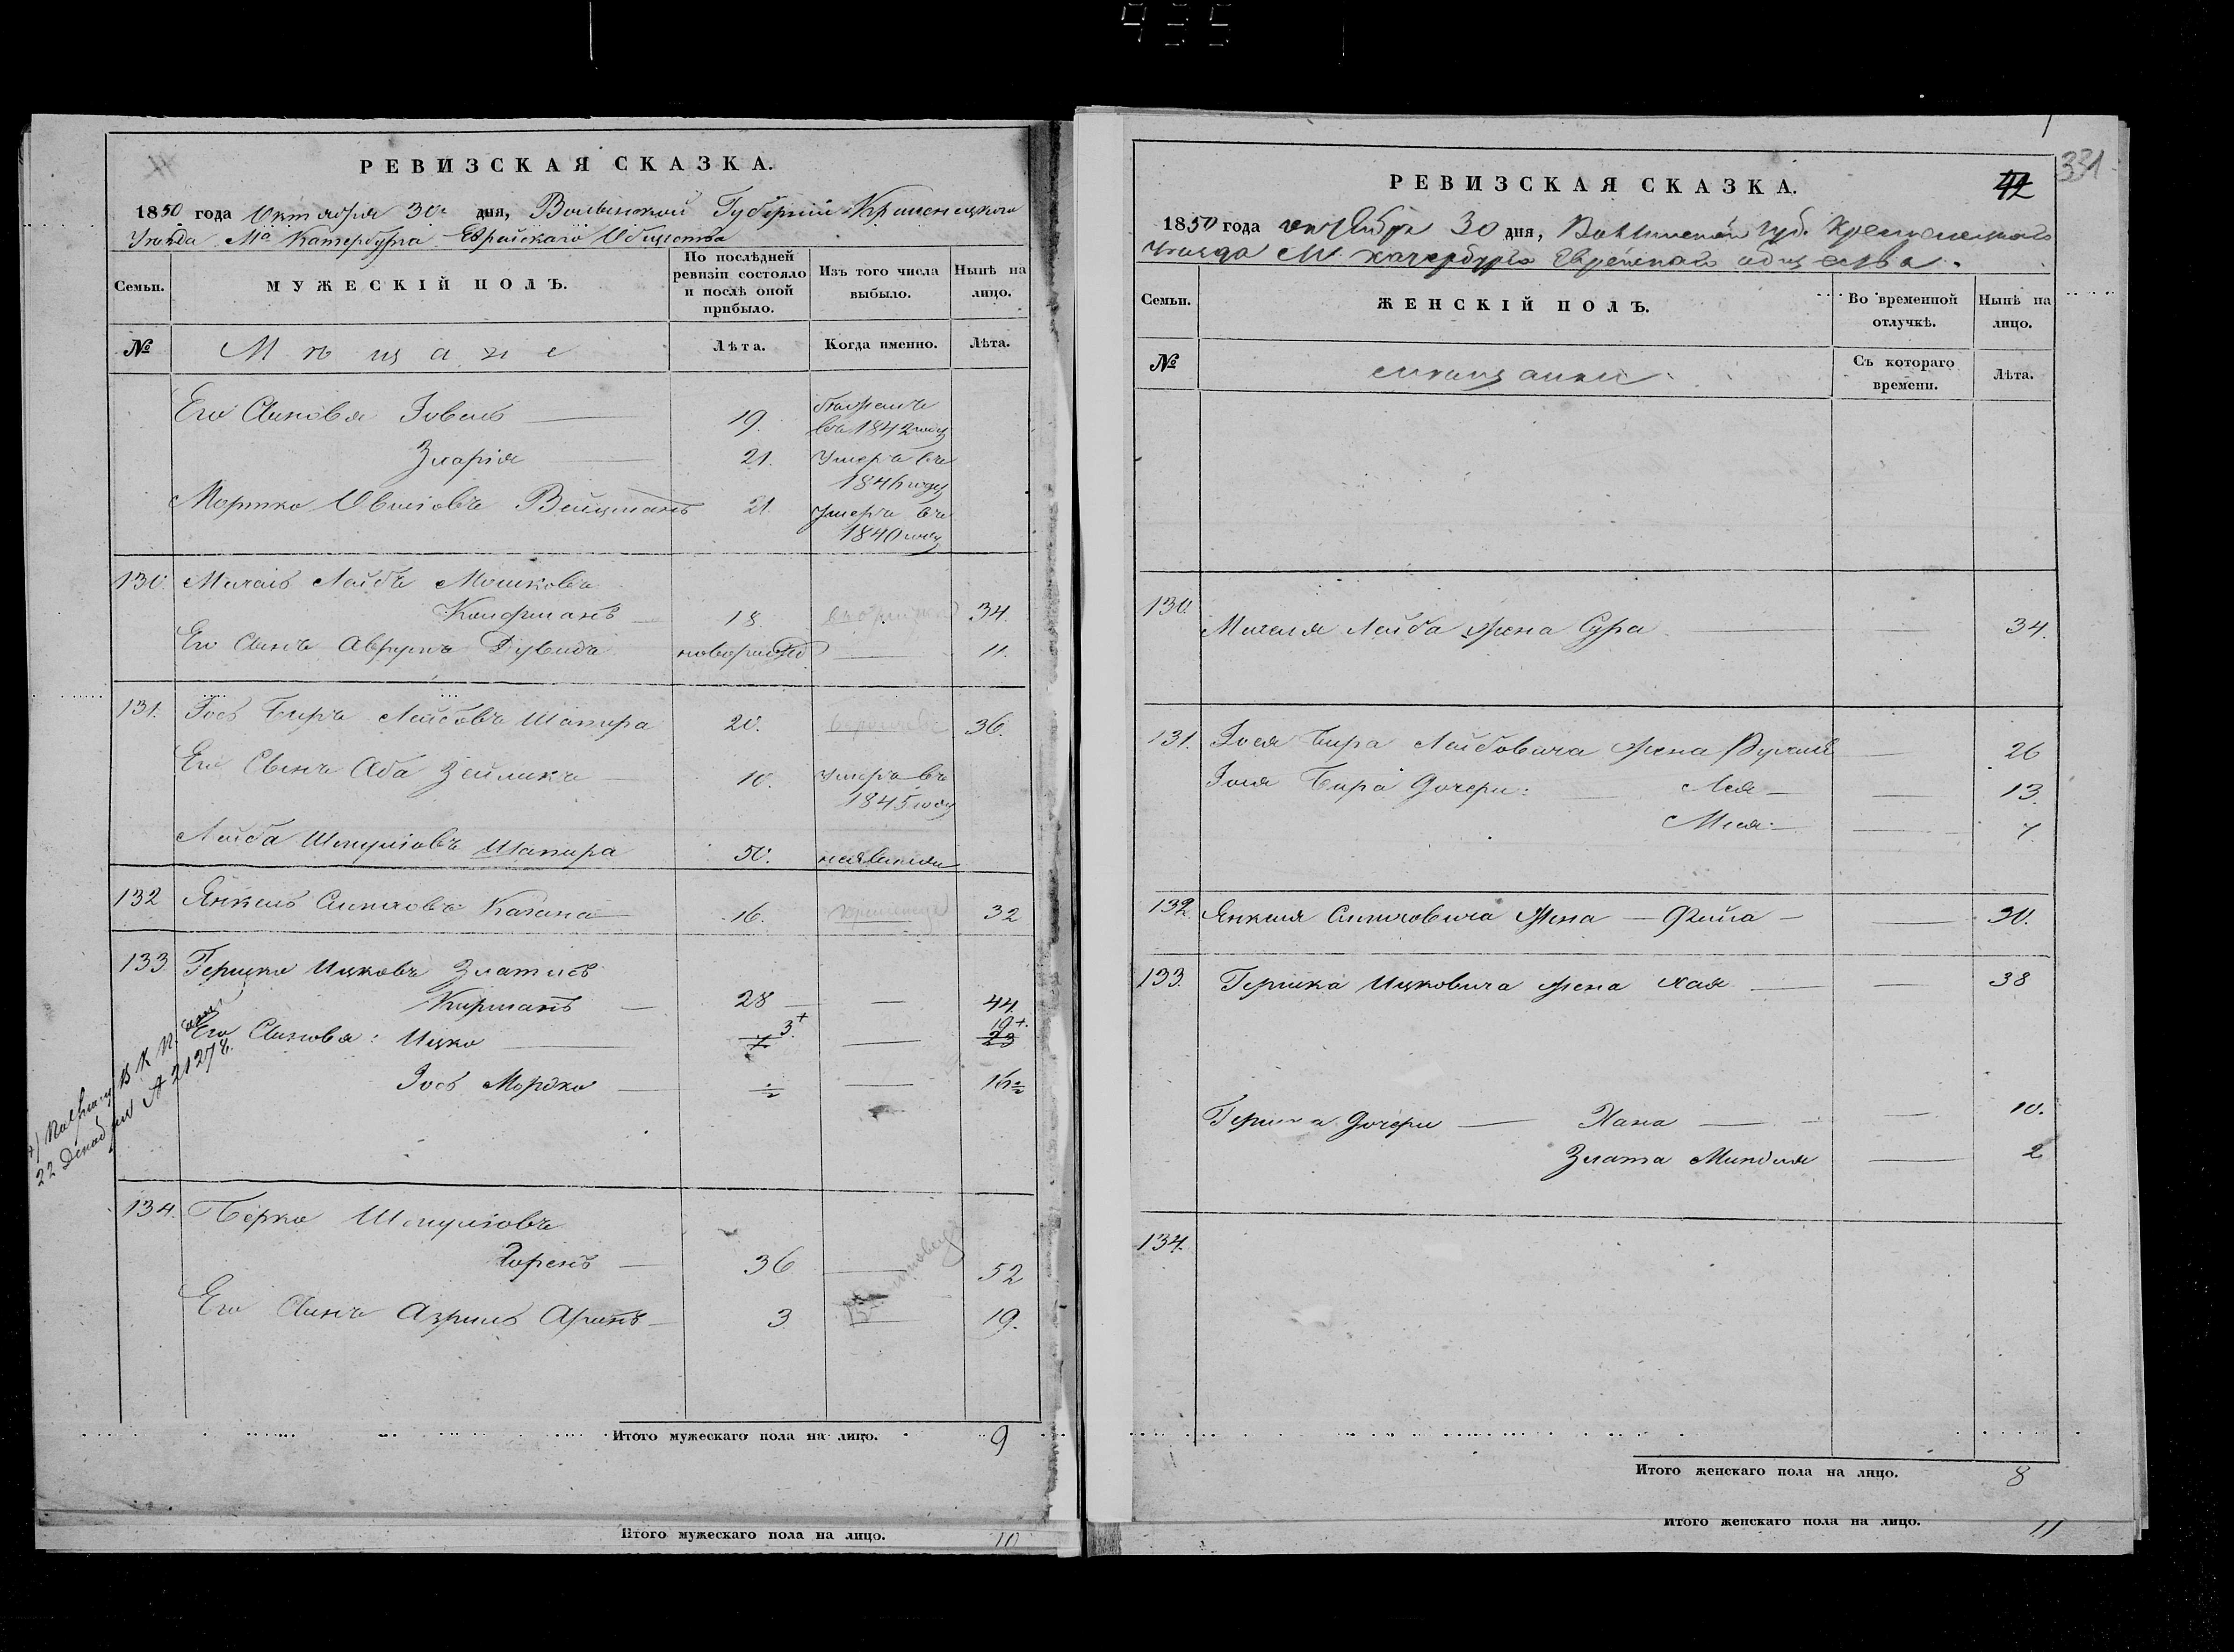 935
РЕВИЗСКАЯ СКАЗКА.
1850 года Октября 30го дня, Волынской Губернии Кременецкого
Уезда Мª Катербурга Еврейскаго Общества
Семьи.
МУЖЕСКІЙ ПОЛЪ.
По послѣдней ревизіи состояло и послѣ оной прибыло.
Изъ того числа выбыло.
Нынѣ на лицо.
№
Мѣщане
Лѣта.
Когда именно.
Лѣта.
Его Сыновья Іовель — 19.
въ 1842 году
Зхарія — 21. Умеръ въ
1846 году
Мортко Вейцманъ 21. Умеръ въ
1840 году
130. Михаль Лейбъ Мошковъ
Кауфманъ — 18. 34.
Его Сынъ Аврумъ Дувидъ новорожд — 11.
131. Іось Беръ Лейбовъ Шапира 20. 36.
Его Сынъ Аба Зейликъ — 10. умеръ въ
1845 году
Лейба Шмулiовъ Шапира 50.
132 Янкель Симховъ Кагана — 16. 32
133 Гершко Ицковъ Златисъ
Кирманъ — 28 — — 44.
Его Сыновья: Ицко — 7 3+ — 19+. 23
Іось Мордко — ½ — 16½
22 Декабря № 21278.
134. Берко Шмулiовъ
Горенъ — 36 — 52
Его Сынъ Азриль Аронъ — 3 — 19.
Итого мужескаго пола на лицо. 9
Итого мужескаго пола на лицо. 10
РЕВИЗСКАЯ СКАЗКА.
42
331
1850 года октября 30 дня, Волынской губ. Кременецкаго
уезда М. Катербурга Еврейскаго общества.
Семьи.
ЖЕНСКІЙ ПОЛЪ.
Во временной отлучкѣ.
Нынѣ на лицо.
№
мещанки
Съ котораго времени.
Лѣта.
130.
Михеля Лейба жена Сура — — 34.
131. Іося Бера Лейбовича жена Рухля — 26
Іося Бера дочери: — Лея — — 13.
Мея — — 7.
132. Янкеля Симховича жена — Фейга — — 30.
133. Гершка Ицковича жена Хая — — 38
Гершка дочери — Хана — — 10.
Злата Миндля — 2
134.
Итого женскаго пола на лицо. 8
Итого женскаго пола на лицо. 11